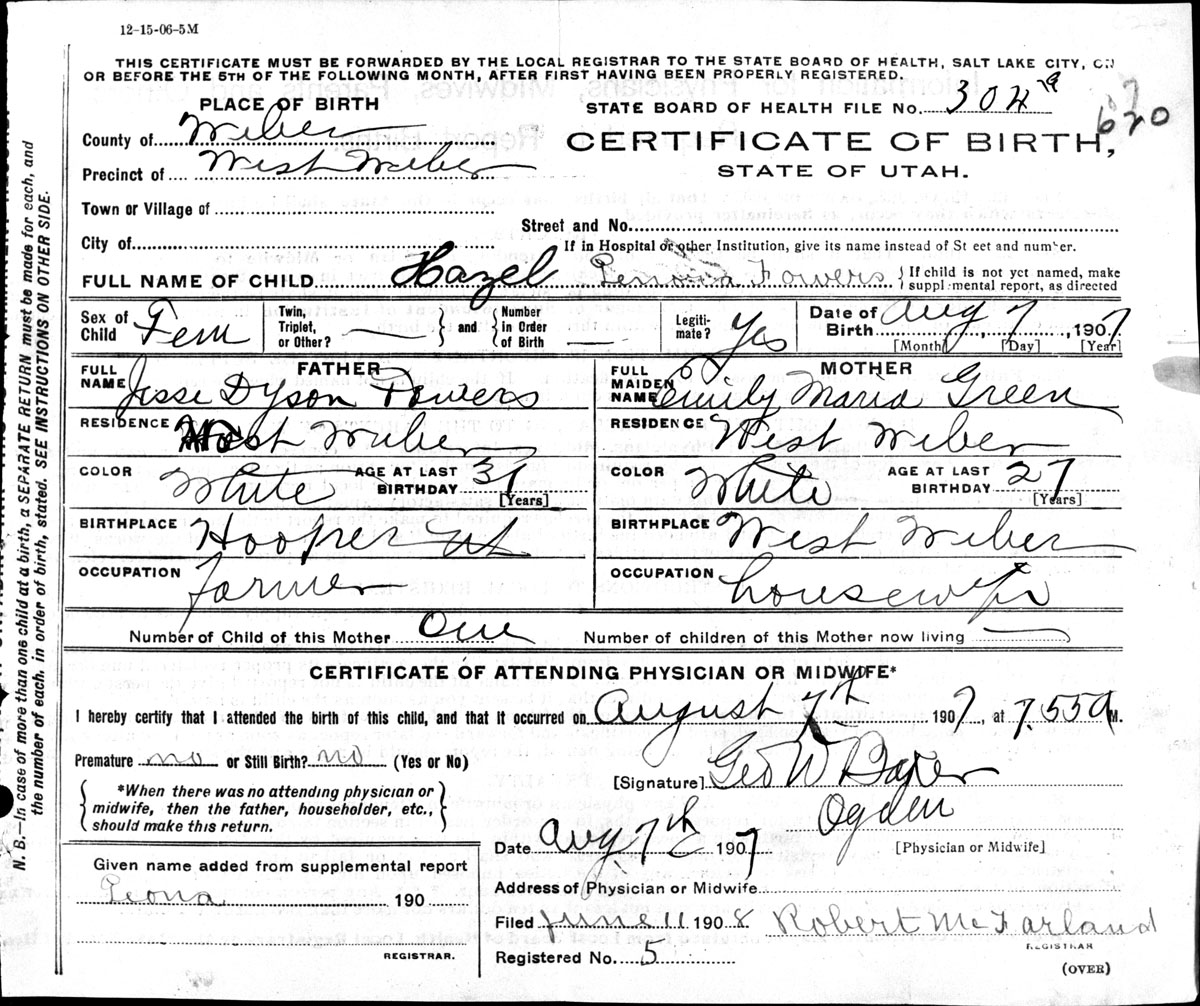 12-15-06-5M
THIS CERTIFICATE MUST BE FORWARDED BY THE LOCAL REGISTRAR TO THE STATE BOARD OF HEALTH, SALT LAKE CITY, ON
OR BEFORE THE 5TH OF THE FOLLOWING MONTH, AFTER FIRST HAVING BEEN PROPERLY REGISTERED.
PLACE OF BIRTH
STATE BOARD OF HEALTH FILE No. 304
620
County of Weber
CERTIFICATE OF BIRTH,
STATE OF UTAH.
Precinct of West Weber
Town or Village of
Street and No.
City of
If in Hospital or other Institution, give its name instead of St eet and number.
FULL NAME OF CHILD Hazel Fowers { If child is not yet named, make
supplemental report, as directed
Sex of Child Fem
Twin, Triplet, or Other? — } and { Number in Order of Birth —
Legiti-mate? Yes
Date of Birth Aug 7, 1907
[Month] [Day] [Year]
FATHER
FULL NAME Jesse Dyson Fowers
RESIDENCE West Weber
COLOR White AGE AT LAST BIRTHDAY 31 [Years]
BIRTHPLACE Hooper Ut
OCCUPATION farmer
MOTHER
FULL MAIDEN NAME Emily Maria Green
RESIDENCE West Weber
COLOR White AGE AT LAST BIRTHDAY 27 [Years]
BIRTHPLACE West Weber
OCCUPATION housewife
Number of Child of this Mother One Number of children of this Mother now living —
CERTIFICATE OF ATTENDING PHYSICIAN OR MIDWIFE*
I hereby certify that I attended the birth of this child, and that it occurred on August 7th 1907, at 7.55 a M.
Premature no or Still Birth? no (Yes or No)
[Signature] Geo W Baker
*When there was no attending physician or
midwife, then the father, householder, etc.,
should make this return.
Ogden
[Physician or Midwife]
Date Aug 7th 1907
Given name added from supplemental report
Leona 190
REGISTRAR.
Address of Physician or Midwife
Filed June 11 1908 Robert McFarland
REGISTRAR
Registered No. 5
(OVER)
N. B.—In case of more than one child at a birth, a SEPARATE RETURN must be made for each, and
the number of each, in order of birth, stated. SEE INSTRUCTIONS ON OTHER SIDE.